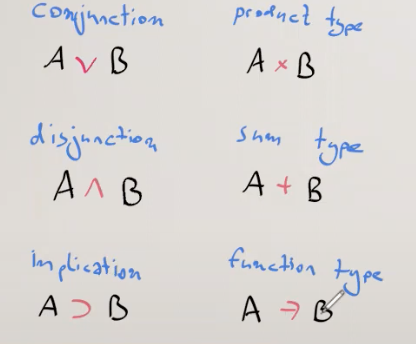 conjunction product type
A ∨ B A × B
disjunction sum type
A ∧ B A + B
implication function type
A ⊃ B A → B